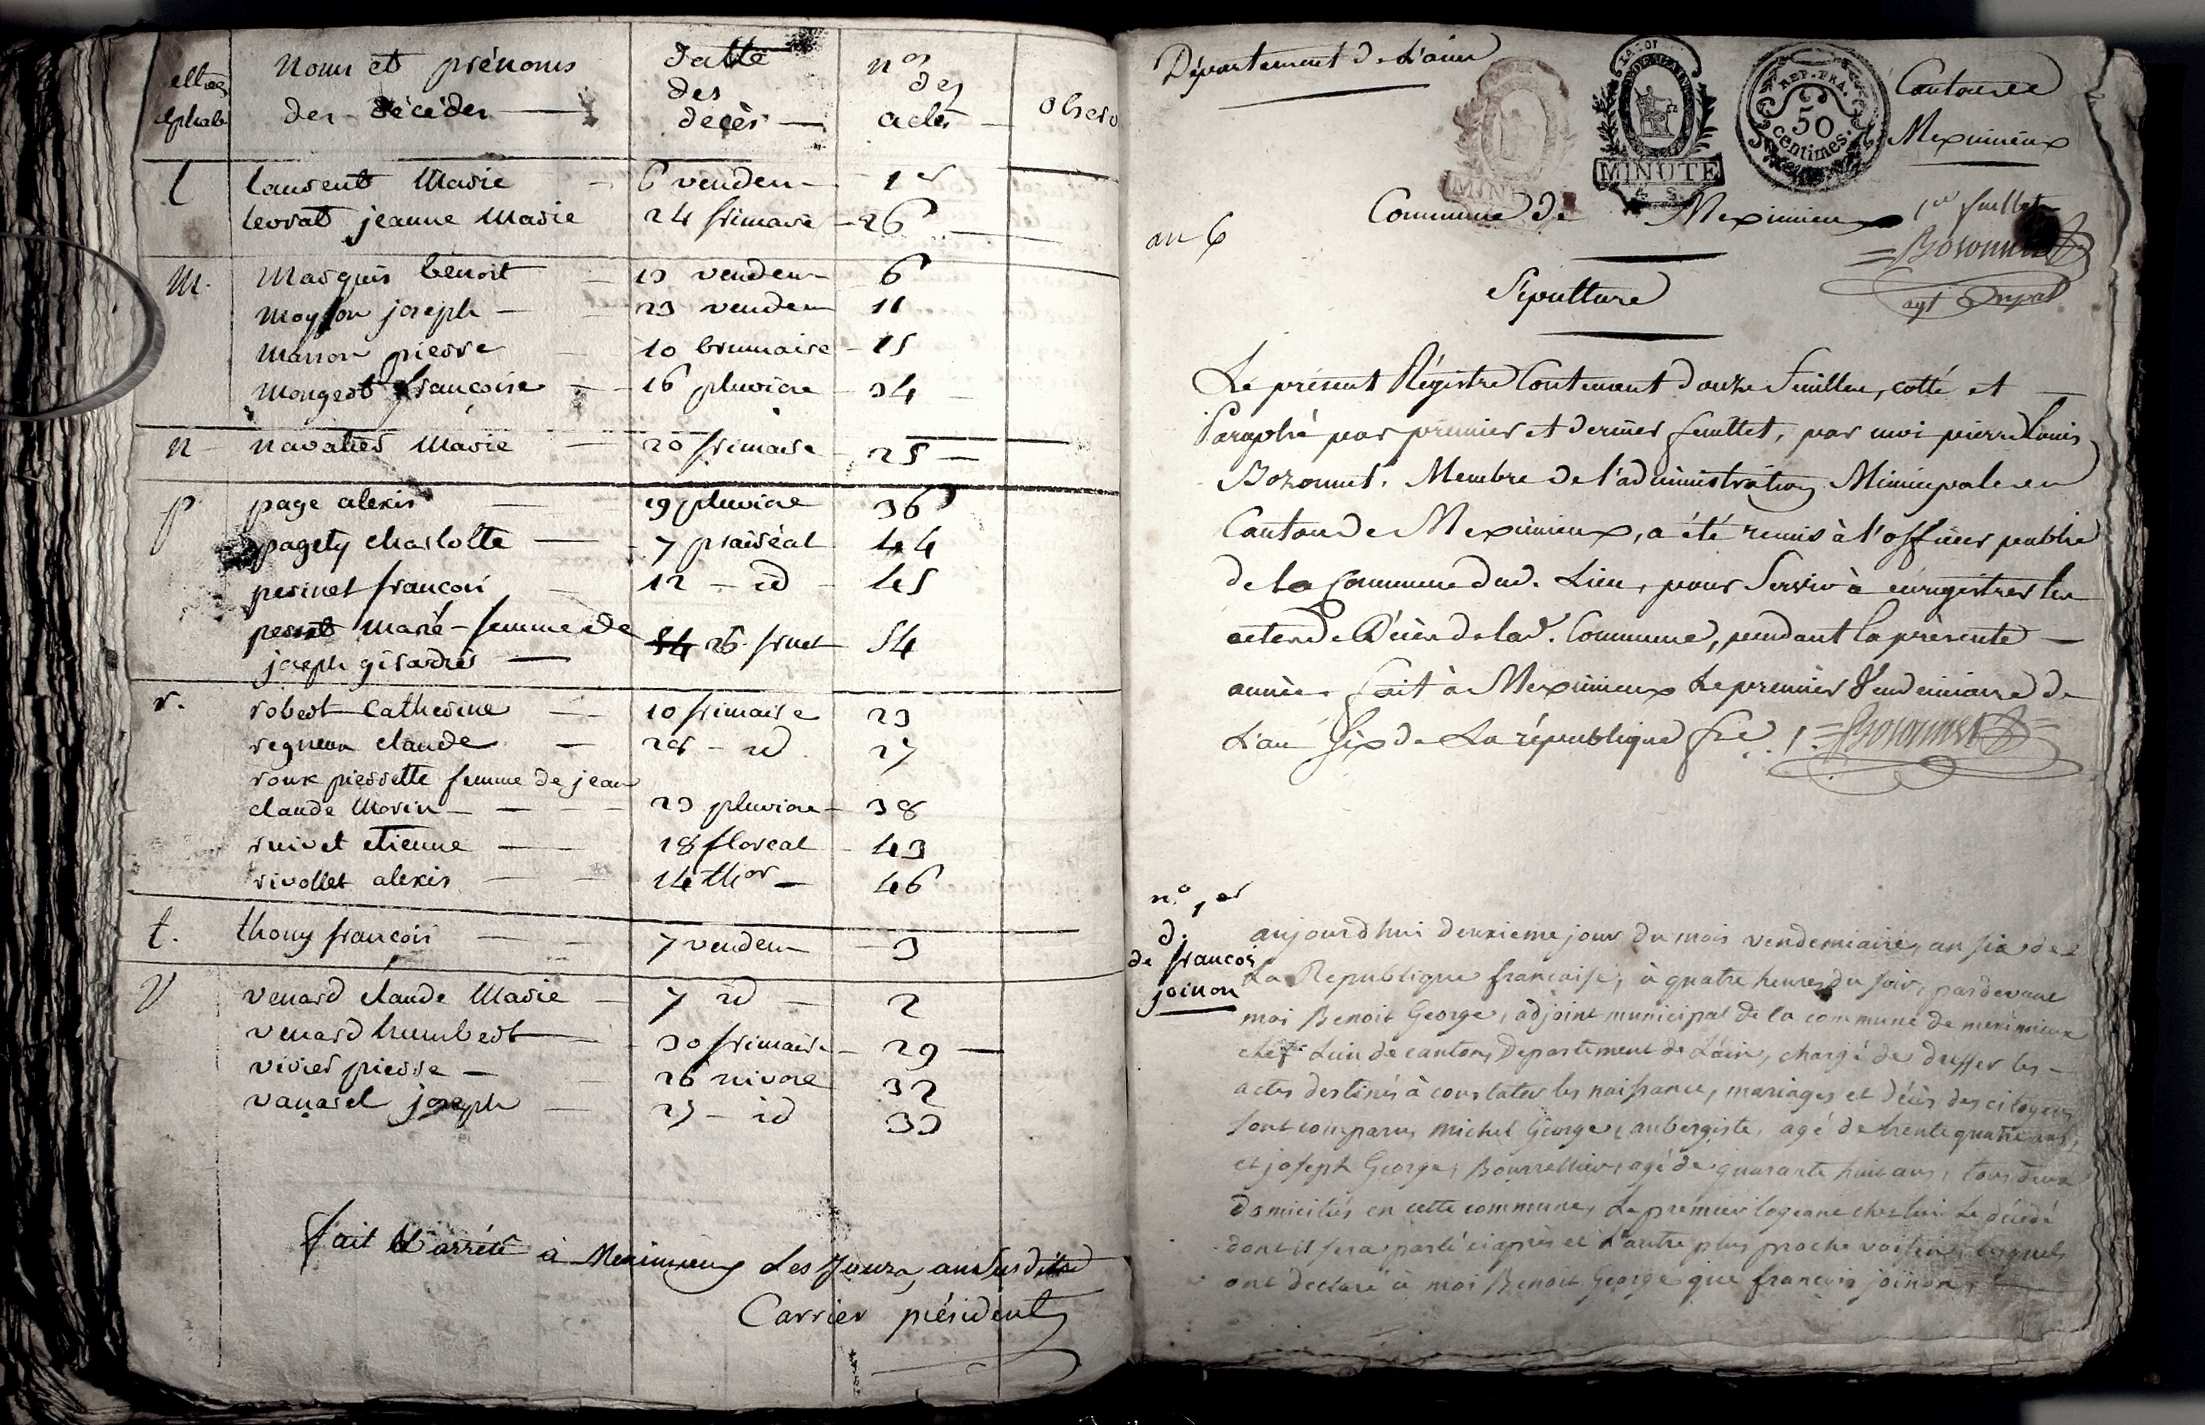 noms et prénoms
des décédés
datte
des
décès
nos
des
actes
observ
l laurent Marie 6 vendem 1er
levrat jeanne Marie 24 frimaire 26
m. Marquis benoit 13 vendem 6
moysson joseph 23 vendem 11
Masson pierre 10 brumaire 15
mongeot françoise 16 pluviose 34
n navalier Marie 20 frimaire 25
p. page alexis 19 pluviose 36
pagety charlotte 7 prairéal 44
perinet francois 12 id 45
Marie femme de
joseph girardier 26 fruct 54
r. robert Catherine 10 frimaire 23
regneux claude 28 id 27
roux pierrette femme de jean
claude Morin 23 pluviose 38
ruivet etienne 18 floreal 43
rivollet alexis 14 thor 46
t. thony françois 7 vendem 3
V venard claude Marie 7 id 2
venard humbert 30 frimaire 29
vivier pierre 26 nivose 32
vanarel joseph 27 id 33
fait et arrêté à Meximieux les jour, an susdits
Carrier président
Département de L'ain
MINUTE
REP. FRA.
50
centimes.
Canton de
Meximieux
an 6
Commune de Meximieux
1er feuillet
Bozonnet
agt
Sépulture
Le présent Régistre Contenant douze feuilles, cotté et
Paraphé par premier et dernier feuillet, par moi pierre Louis
Bozonnet, Membre de l'administration Municipale du
Canton de Meximieux, a été remis à l'officier public
de la Commune dud. Lieu, pour Servir à enregistrer les
actes de Décès de lad. Commune, pendant la présente
année. fait à Meximieux Le premier Vendemiaire de
L'an Six de La république fse. Bozonnet
n.o 1er
d.
de francois
joinon
aujourdhui deuxieme jour du mois vendemiaire, an six de
La Republique francaise, à quatre heures du soir, pardevant
moi Benoit George, adjoint municipal de la commune de meximieux
chef Lieu de canton, Departement de L'ain, chargé de dresser les
actes destinés à constater les naissance, mariages et décès des citoyens
sont comparus michel George, aubergiste, agé de trente quatre ans,
et joseph George, Bourrellier, agé de quarante huit ans, tous deux
domiciliés en cette commune, Le premier logeant chez lui Le décédé
dont il sera parlé ciaprès et l'autre plus proche voisin, lesquels
ont declaré à moi Benoit George que francois joinon